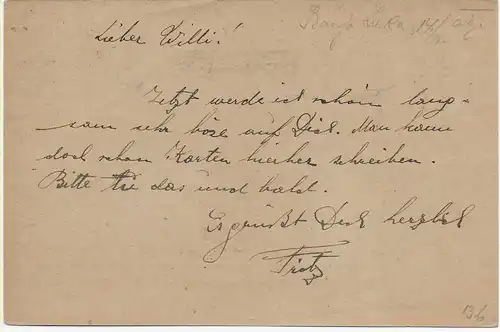 Lieber Willi!
Jetzt werde ich schön lang-
sam sehr böse auf Dich. Man kann
doch schon Karten hierher schreiben.
Bitte tue das und bald.
Es grüßt Dich herzlich
Fritz